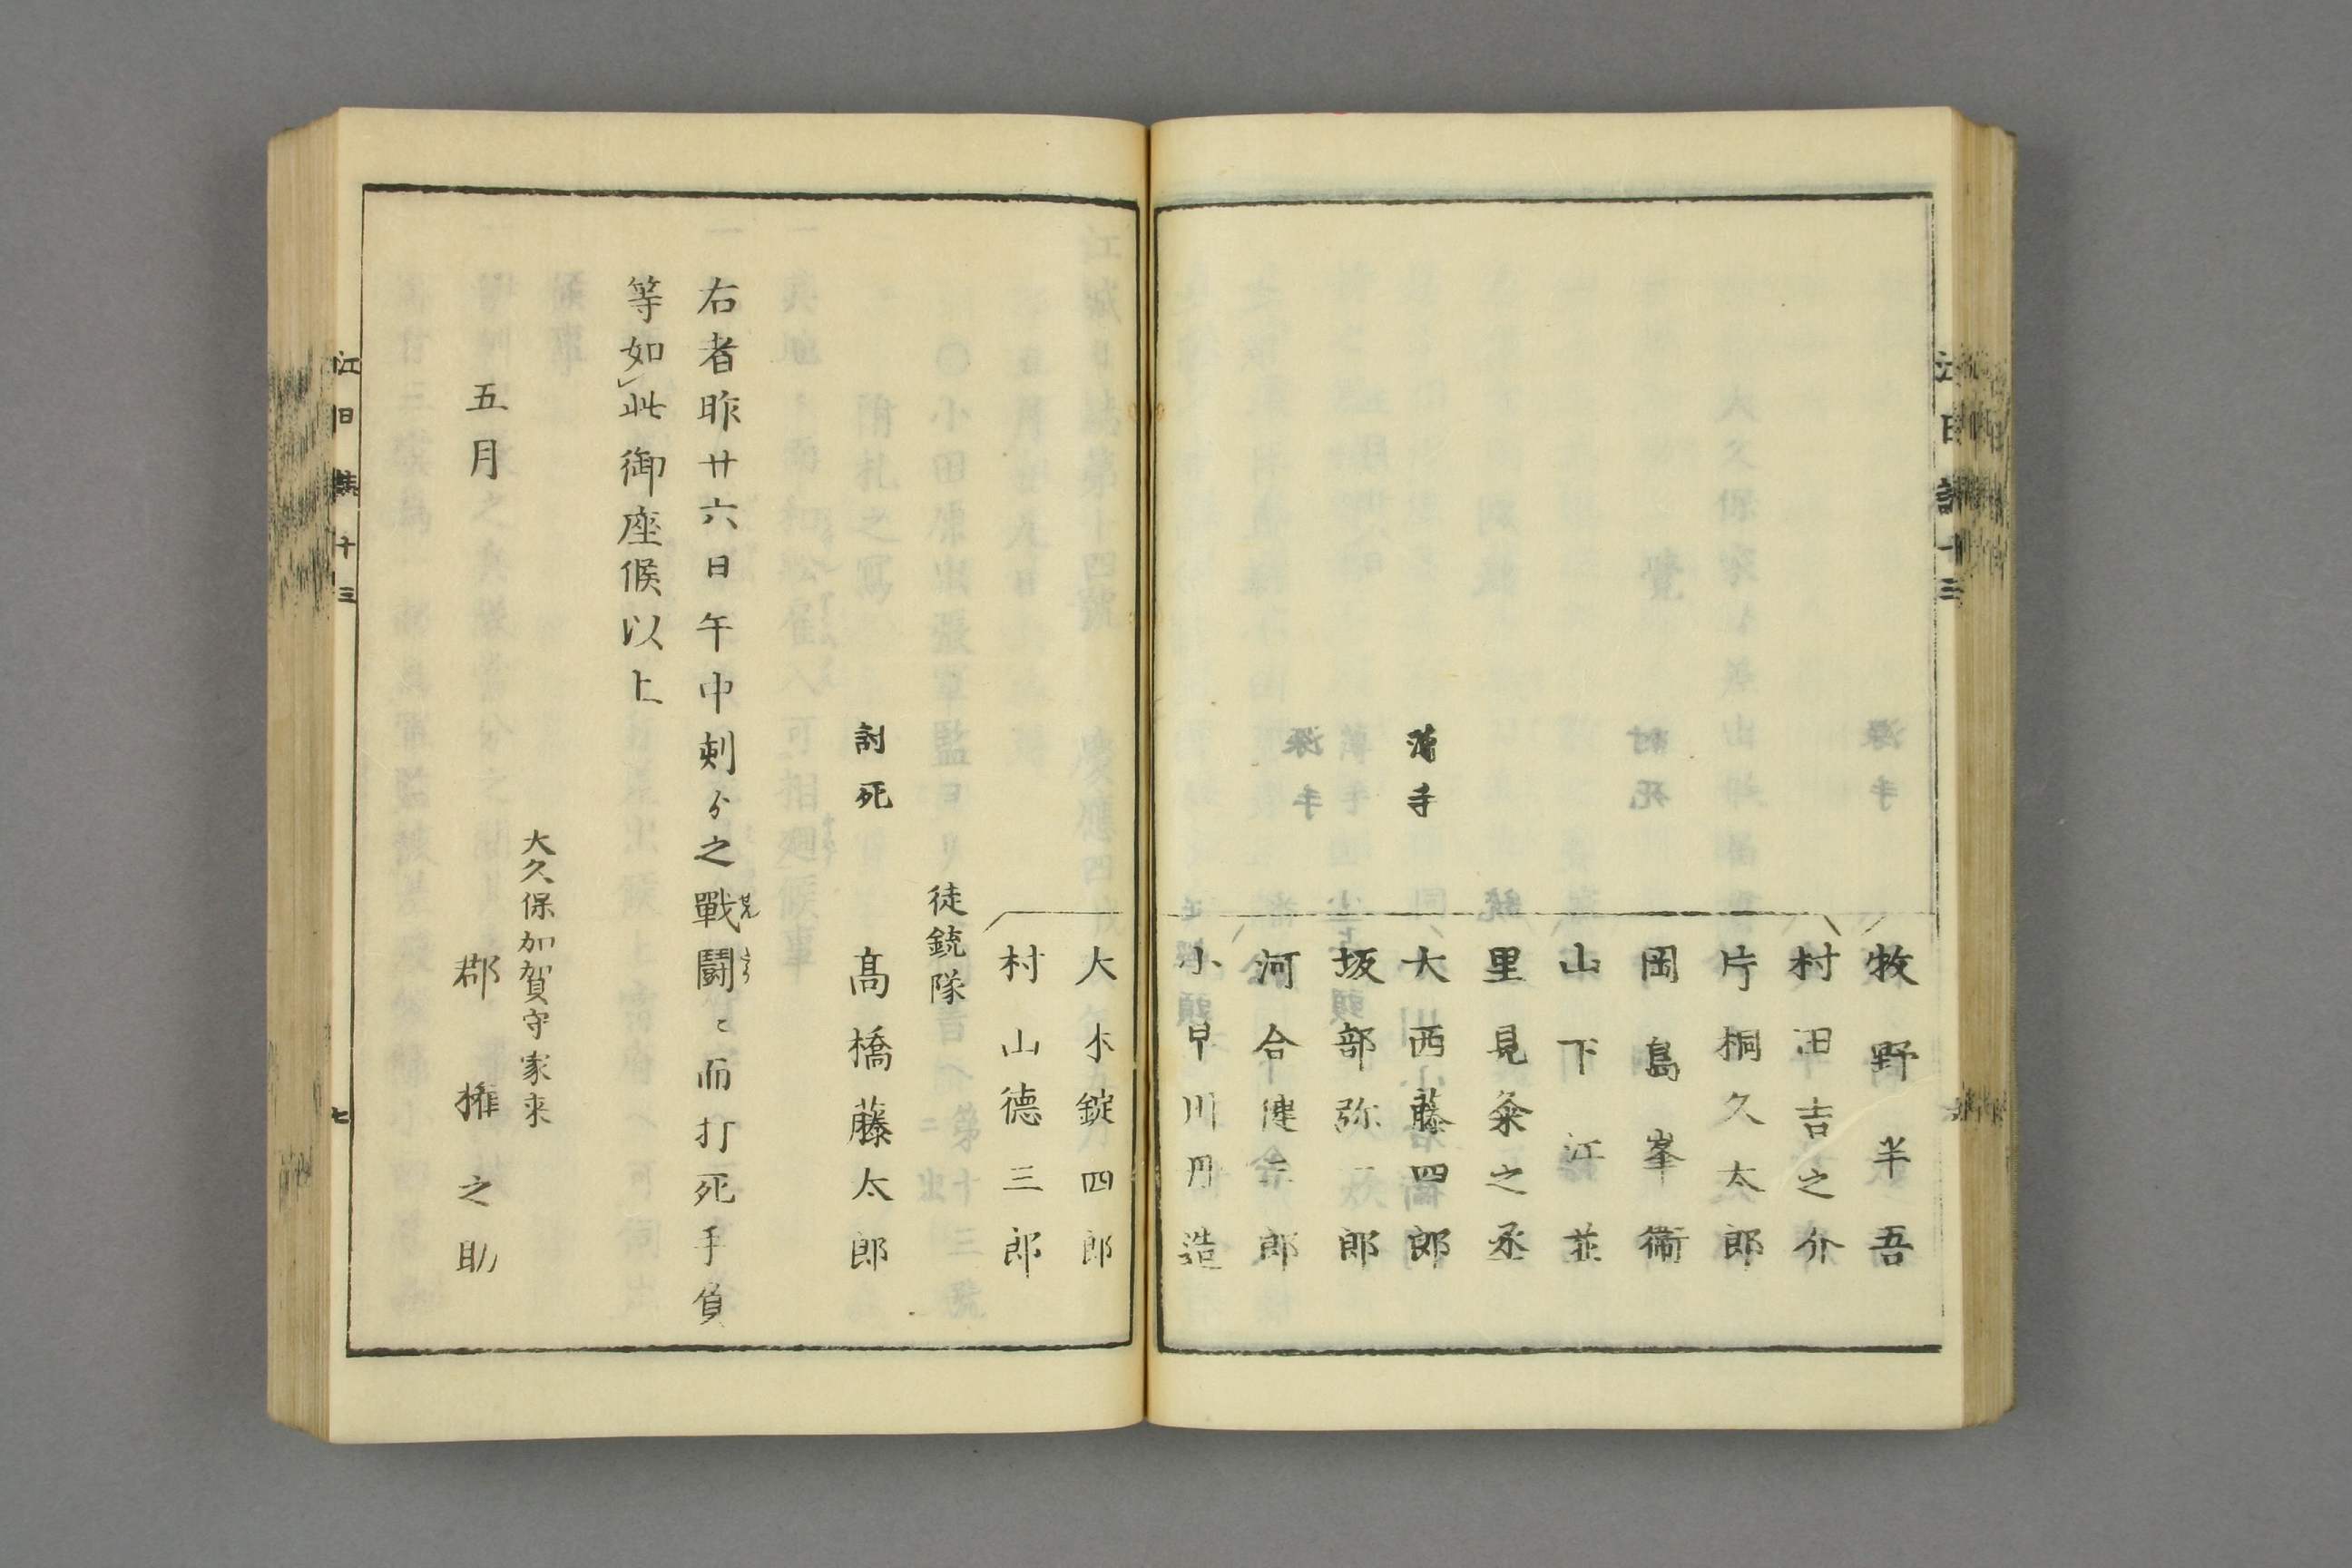 牧野半吾
村田吉之介
片桐久太郎
岡島峯衛
山下江並
里見粂之丞
薄手
大西藤四郎
坂部弥一郎
河合健三郎
小早川丹造
大木錠四郎
村山德三郎
徒銃隊
討死
髙橋藤太郎
右者昨廿六日午中刺ゟ之戰鬪ニ而打死手負
等如此御座候以上
大久保加賀守家来
五月
郡権之助
江日誌十三
七